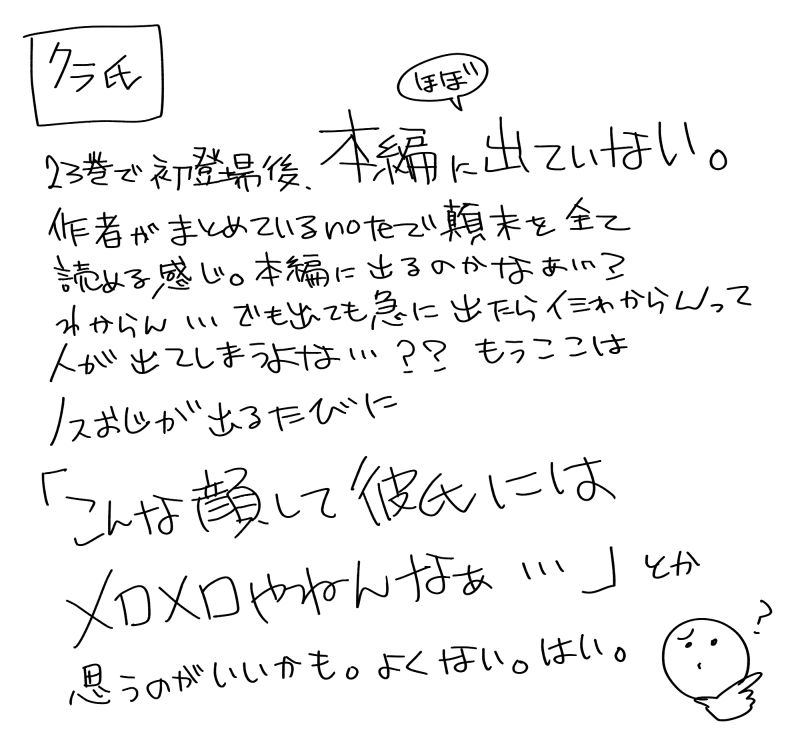 クラ氏
ほぼ
23巻で初登場後、本編に出ていない。
作者がまとめているnoteで顛末を全て
読める感じ。本編に出るのかなぁい?
わからん…でも出ても急に出たら仁わからんって
人が出てしまうよな…?? もうここは
ノスおじが出るたびに
「こんな顔して彼氏には
メロメロやねんなぁ…」とか
思うのがいいかも。よくない。はい。
?